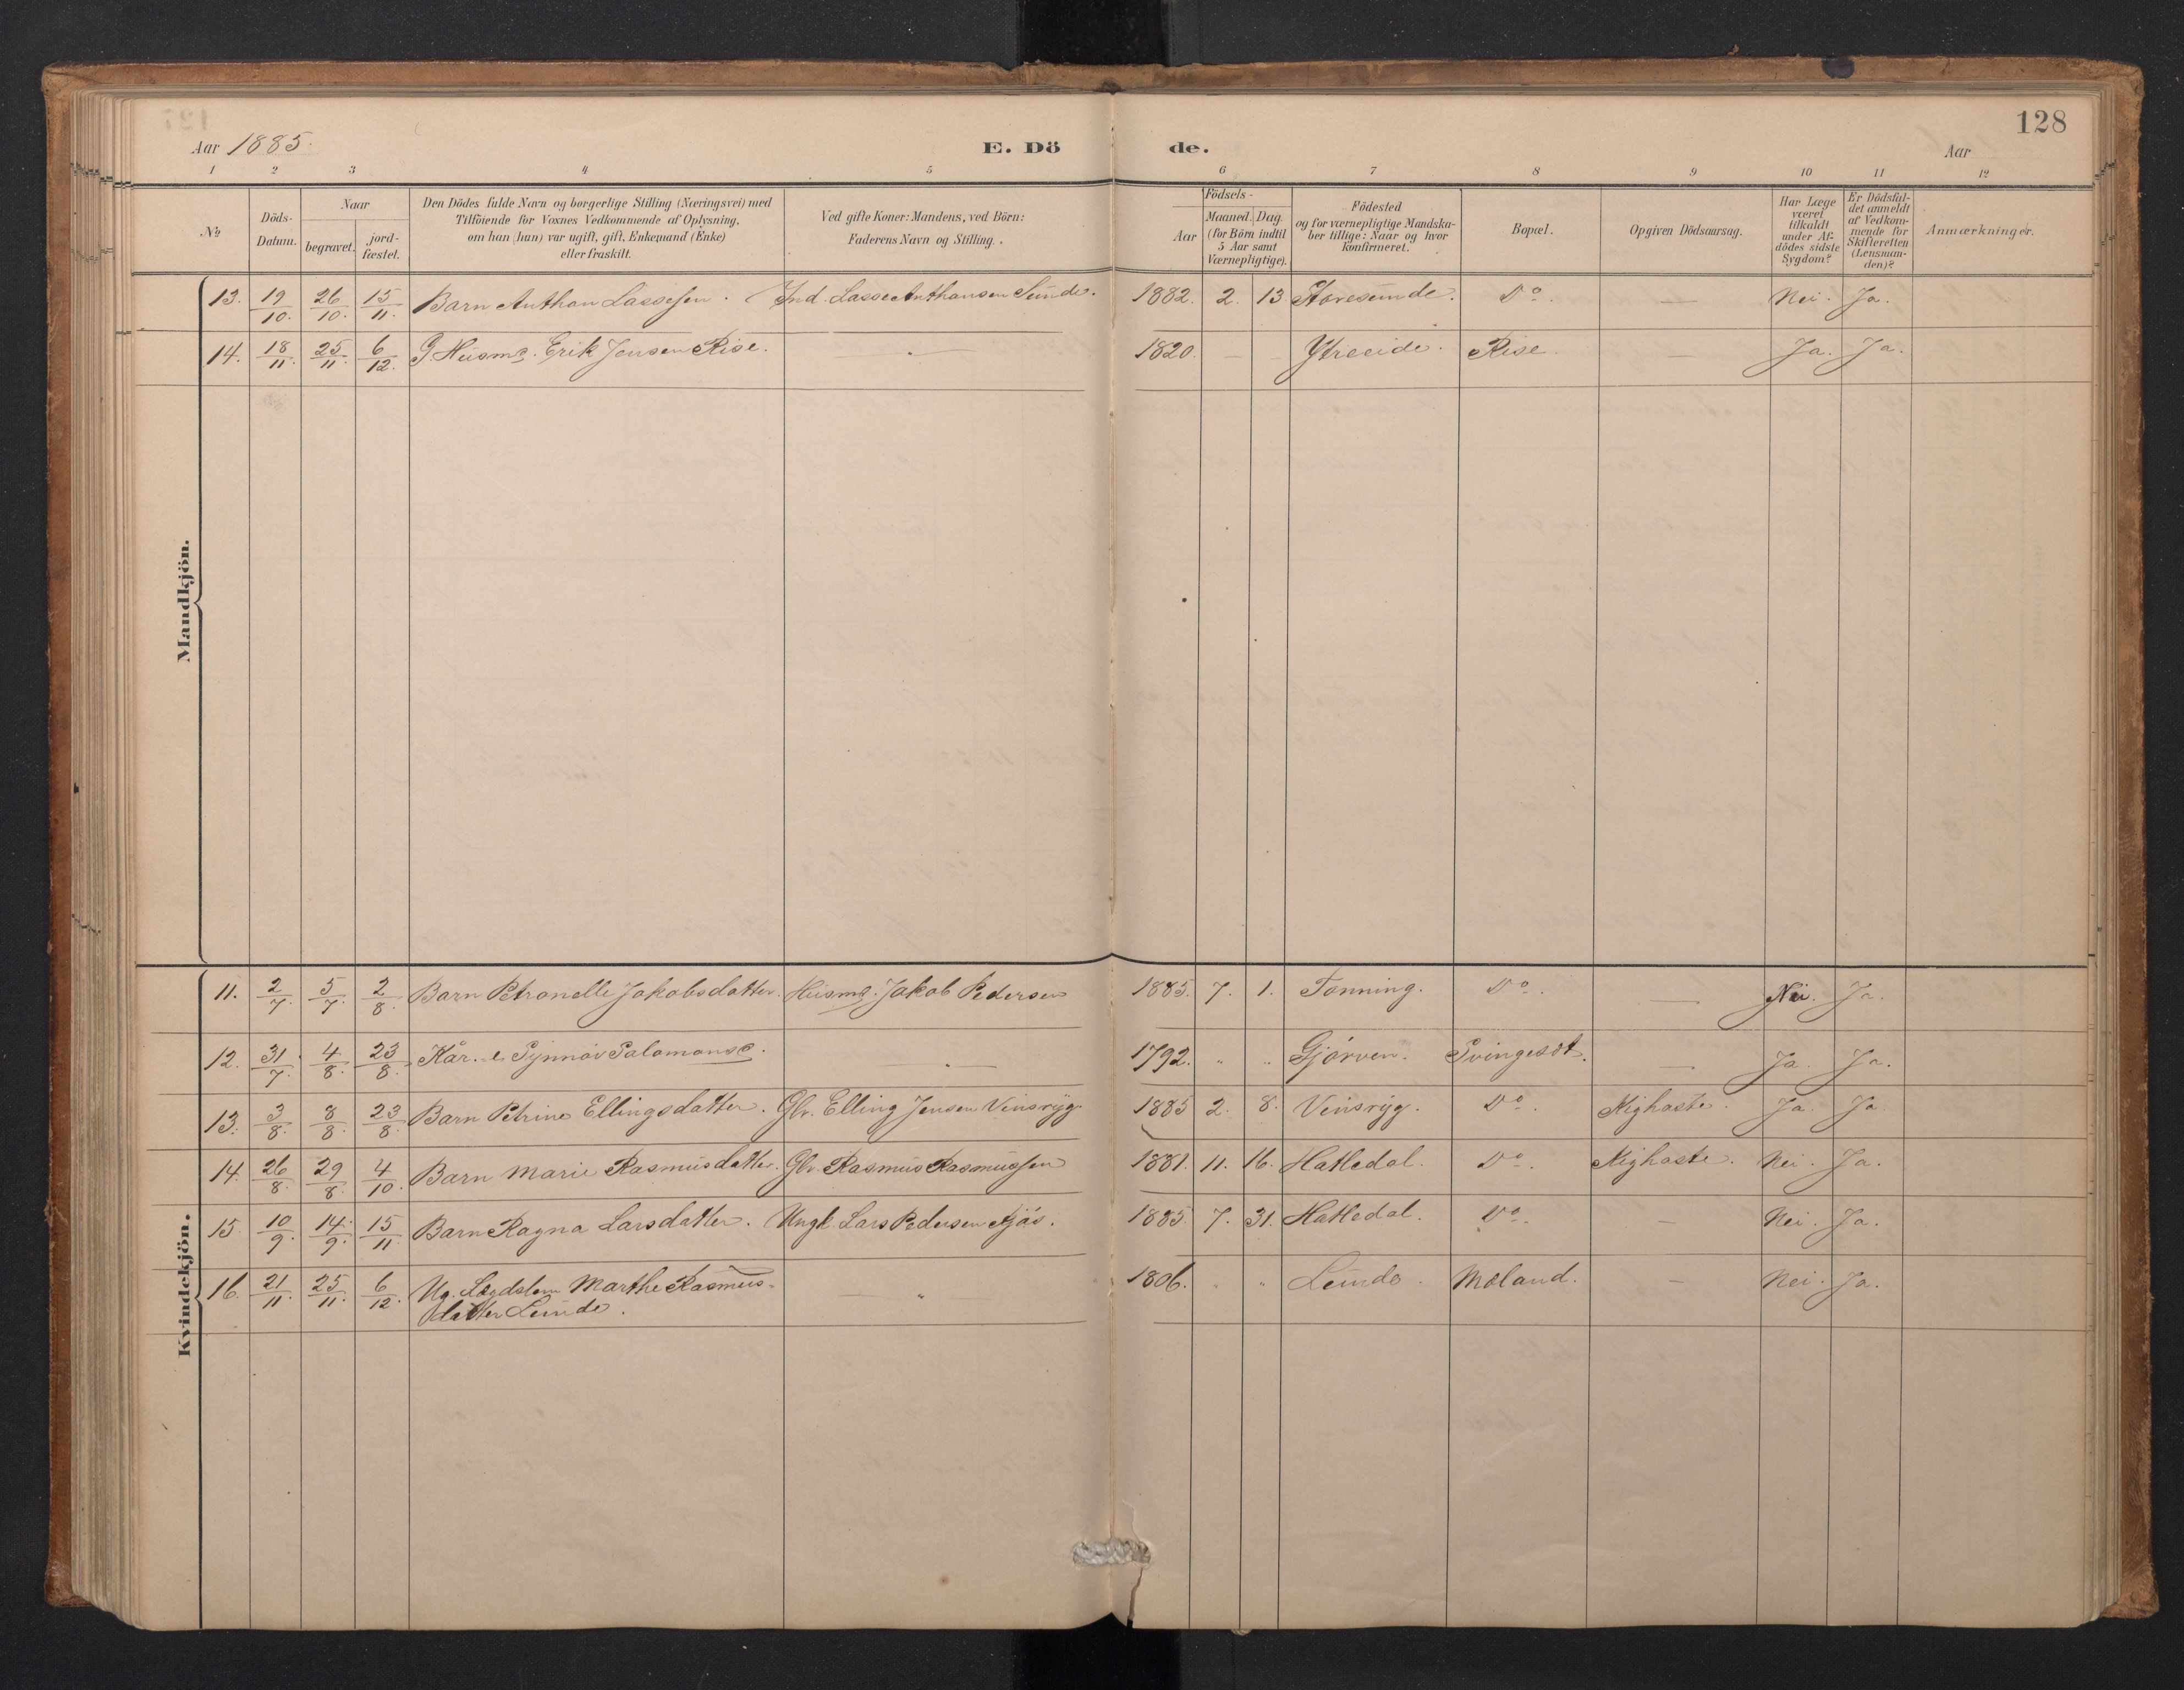 128
Aar 1885.
E. Dö de.
Aar
1 2 3 4 5 6 7 8 9 10 11 12
No
Döds-Datum.
Naar
begravet.
jord-fæstet.
Den Dödes fulde Navn og borgerlige Stilling (Næringsvei) med
Tilföiende for Voxnes Vedkommende af Oplysning,
om han (hun) var ugift, gift, Enkemand (Enke)
eller fraskilt.
Ved gifte Koner: Mandens, ved Börn:
Faderens Navn og Stilling.
Födsels-
Aar
Maaned. Dag
(for Börn indtil
5 Aar samt
Værnepligtige).
Födested
og for værnepligtige Mandska-
ber tillige: Naar og hvor
konfirmeret.
Bopæl.
Opgiven Dödsaarsag.
Har Læge
været
tilkaldt
under Af-
dödes sidste
Sygdom?
Er Dödsfal-
det anmeldt
af Vedkom-
mende for
Skifteretten
(Lensman-
den)?
Anmærkninger.
Mandkjön.
13. 19/10. 26/10. 15/11. Barn Anthon Lassesen. Ind. Lasse Anthonsen Sunde. 1882. 2. 13. Storesunde. Do. — Nei. Ja.
14. 18/11. 25/11. 6/12. G. Husmd. Erik Jensen Rise. 1820. — — Ytreeide. Rise. — Ja. Ja.
Kvindekjön.
11. 2/7. 5/7. 2/8. Barn Petronelle Jakobsdatter. Husmd. Jakob Pedersen 1885. 7. 1. Tonning. Do. — Nei. Ja.
12. 31/7. 4/8. 23/8. Kår.e Synnøv Salomonsd. 1792. " " Gjørven. — Ja. Ja.
13. 3/8. 8/8. 23/8. Barn Petrine Ellingsdatter. Gbr. Elling Jensen Vinsryg. 1885 2. 8. Vinsryg. Do. Kighoste. Ja. Ja
14. 26/8. 29/8. 4/10. Barn Marie Rasmusdatter. Gbr. Rasmus Rasmussen 1881. 11. 16. Hatledal. Do. Kighoste. Nei. Ja.
15. 10/9. 14/9. 15/11 Barn Ragna Larsdatter. Ungk Lars Pedersen 1885. 7. 31. Hatledal. Do. — Nei. Ja.
16. 21/11. 25/11. 6/12. Ug. Lægdslem Marthe Rasmus-
datter Sunde. — " 1806. " " Sunde. Moland. — Nei. Ja.